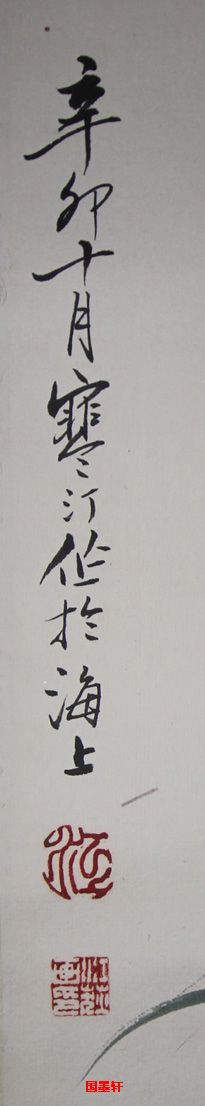 辛卯十月寒汀作於海上
国墨轩